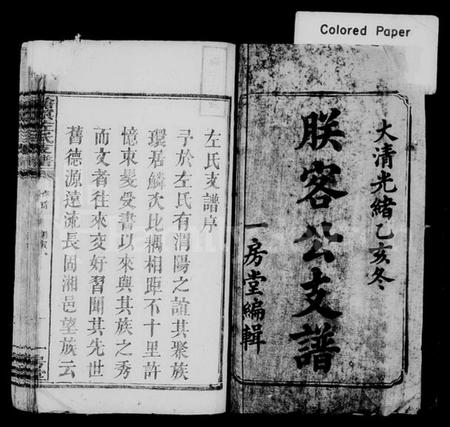 Colored Paper
大清光緒乙亥冬
朕容公支譜
一房堂編輯
左氏支譜序
予於左氏有渭陽之誼其聚族
環居鱗次比耦相距不十里許
憶束髮受書以來與其族之秀
而文者往來交好習聞其先世
舊德源遠流長固湘邑望族云